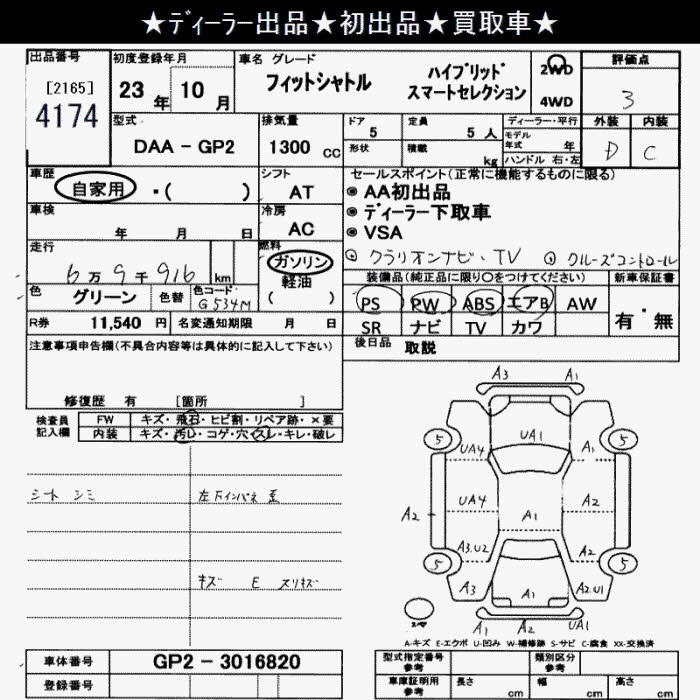 ★ディーラー出品★初出品★買取車★
出品番号
[2165]
4174
初度登録年月
23年 10月
車名 グレード
フィットシャトル
ハイブリッド
スマートセレクション
2WD
4WD
評価点
3
外装 内装
D C
型式
DAA－GP2
排気量
1300 cc
ドア
5
定員
5人
ディーラー・平行
モデル
年式 年
形状
積載
kg
ハンドル 右・左
車歴
自家用 ・( )
シフト
AT
車検
年 月 日
冷房
AC
走行
6万9千916 km
燃料
ガソリン
軽油
( )
色
グリーン
色替
色コード
G534M
R券 11,540 円
名変通知期限 月 日
セールスポイント(正常に機能するものに限る)
◉AA初出品
◉ディーラー下取車
◉VSA
◎クラリオンナビ・TV ◎クルーズコントロール
装備品(純正品に限り〇をつけてください)
PS PW ABS エアB AW
SR ナビ TV カワ
新車保証書
有・無
後日品 取説
注意事項申告欄(不具合内容等は具体的に記入して下さい)
修復歴 有 [箇所 ]
検査員
記入欄
FW キズ・飛石・ヒビ割・リペア跡・×要
内装 キズ・汚レ・コゲ・穴・スレ・キレ・破レ
シート シミ
キズ E スリキズ
A3 A1
5 5
UA4 UA1 A1
UA4 A1 A2
A2
A3.U2 A2
5 5
A3 A1 A2.U1
A1 A2 UA1
A-キズ E-エクボ U-凹み W-補修跡 S-サビ C-腐食 XX-交換済
車体番号 GP2－3016820
登録番号
型式指定番号
参考
類別区分
参考
車庫証明用
参考
長さ cm
幅 cm
高さ cm